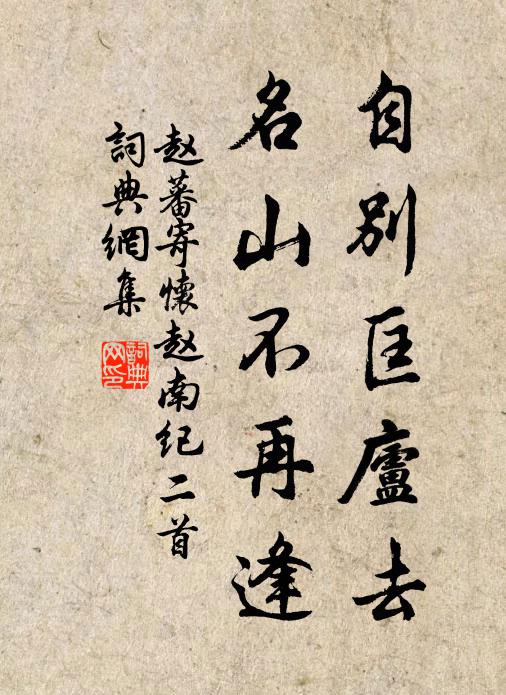 自別匡廬去
名山不再逢
赵蕃寄懷赵南纪二首
詞典網集
詞典网印